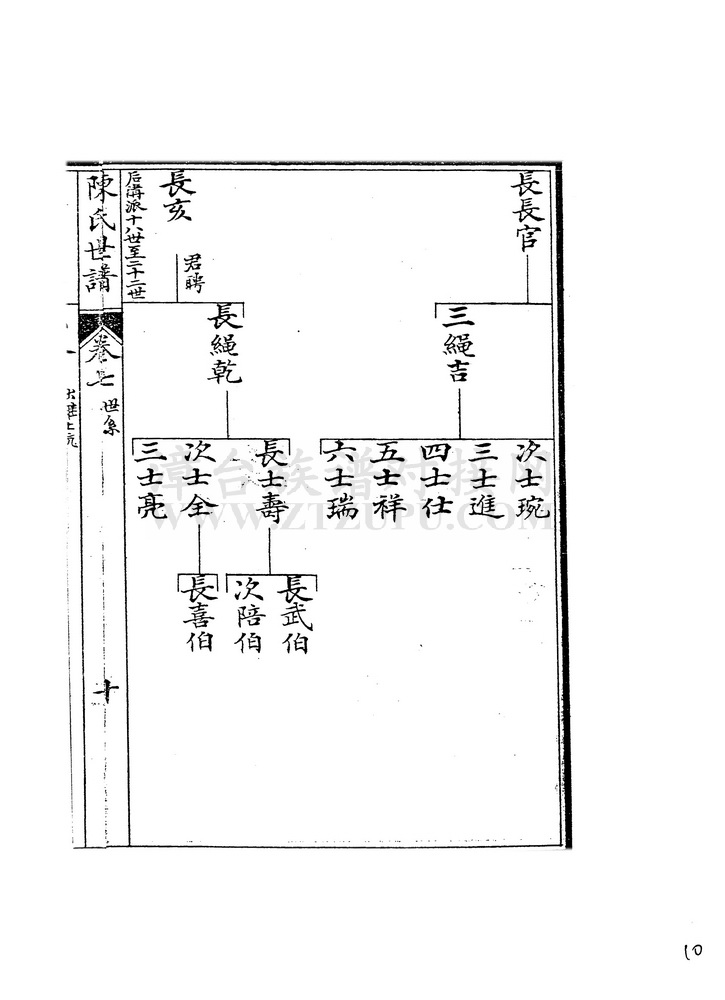 長長官
三繩吉
次士琬
三士進
四士仕
五士祥
六士瑞
長亥
君聘
后溝派十八世至二十二世
長繩乾
長士壽
次士全
三士亮
長武伯
次陪伯
長喜伯
陳氏世譜
卷七
世系
十
漳台族譜对接网
WWW.ZTZUPU.COM
10